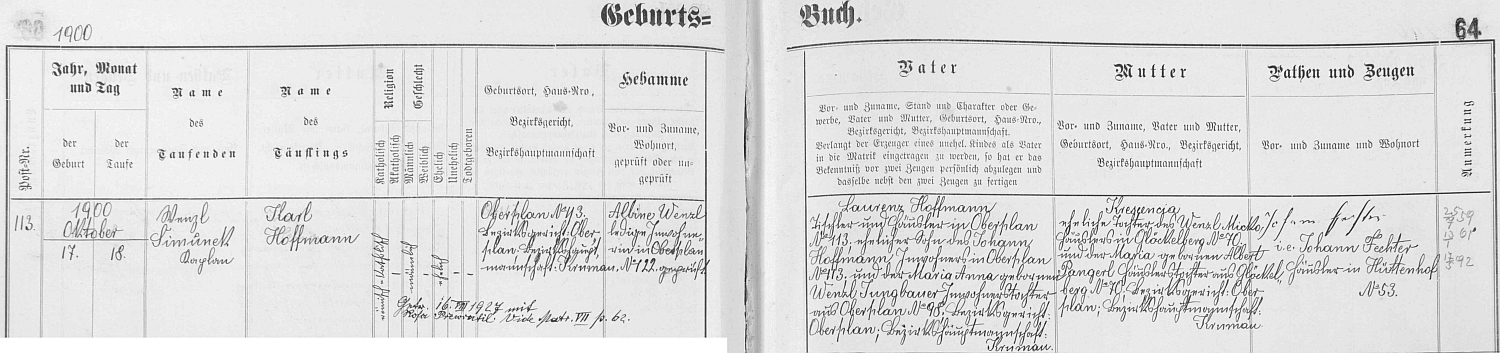 Geburts=
Buch.
1900
64
Post-Nr.
Jahr, Monat
und Tag
der
Geburt
der
Taufe
Name
des
Taufenden
Name
des
Täuflings
Religion
Katholisch
Akatholisch
Geschlecht
Männlich
Weiblich
Ehelich
Unehelich
Todtgeboren
Geburtsort, Haus-Nro.,
Bezirksgericht,
Bezirkshauptmannschaft
Hebamme
Vor- und Zuname,
Wohnort,
geprüft oder un-
geprüft
Vater
Vor- und Zuname, Stand und Charakter oder Ge-
werbe, Vater und Mutter, Geburtsort, Haus-Nro.,
Bezirksgericht, Bezirkshauptmannschaft.
Verlangt der Erzeuger eines unehel. Kindes als Vater
in die Matrik eingetragen zu werden, so hat er das
Bekenntniß vor zwei Zeugen persönlich abzulegen und
dasselbe nebst den zwei Zeugen zu fertigen
Mutter
Vor- und Zuname, Vater und Mutter,
Geburtsort, Haus-Nro., Bezirksgericht,
Bezirkshauptmannschaft
Pathen und Zeugen
Vor- und Zuname und Wohnort
Anmerkung
113.
1900
Oktober
17. 18.
Wenzl
Šimunek
Kaplan
Karl
Hoffmann
römisch-katholisch
männlich
ehelich
Oberplan No 113.
Bezirksgericht: Ober-
plan, Bezirkshaupt-
mannschaft: Krumau.
Albine Wenzl
ledige Inwohne-
rin in Oberplan
No 122. geprüft
Getr. 16. VIII 1927 mit
Rosa Vide Matr. VII p. 62.
Laurenz Hoffmann
Tischler und Häusler in Oberplan
No 113, ehelicher Sohn des Johann
Hoffmann, Inwohners in Oberplan
No 113. und der Maria Anna gebornen
Wenzl Jungbauer Inwohnerstochter
aus Oberplan No 98, Bezirksgericht:
Oberplan; Bezirkshauptmannschaft:
Krumau.
Krescencia
eheliche Tochter des Wenzl Micko
Häuslers in Glöckelberg No 70
und der Maria gebornen Albert
Pangerl Häuslerstochter aus Glöckel-
berg No 70, Bezirksgericht: Ober-
plan; Bezirkshauptmannschaft:
Krumau
Johann Fechter
i. e. Johann Fechter
Häusler in Hüttenhof
No 53.